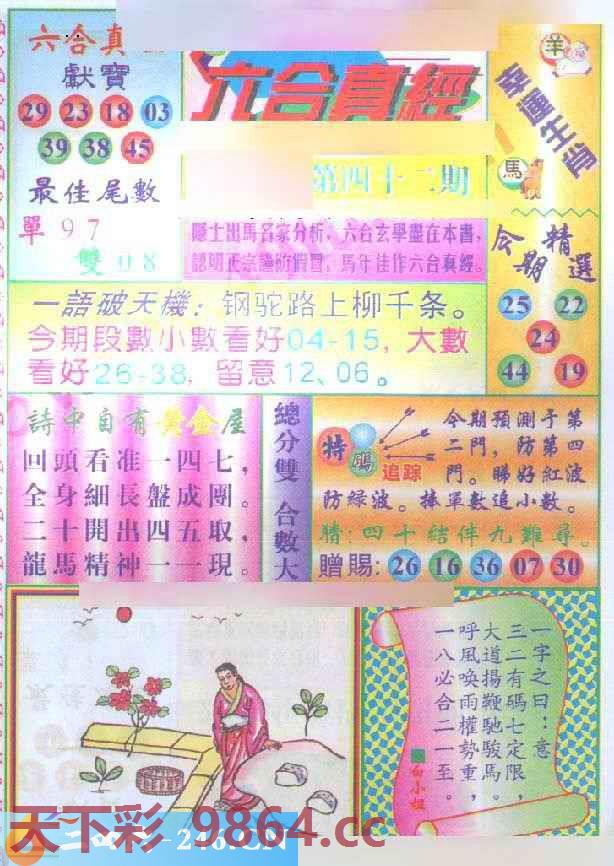 六合真
獻寶
29 23 18 03
39 38 45
最佳尾數
單 9 7
雙 0 8
六合真經
第四十二期
隱士出馬名家分析，六合玄學盡在本書，
認明正宗謹防假冒，馬年佳作六合真經。
羊
幸運生肖
馬
今期精選
25 22
24
44 19
一語破天機：钢驼路上柳千条。
今期段數小數看好04-15，大數
看好26-38，留意12、06。
詩中自有黃金屋
回頭看准一四七，
全身細長盤成團。
二十開出四五取，
龍馬精神一一現。
總分雙 合數大
特碼
追踪
今期預測予第
二門，防第四
門。睇好紅波
防綠波。捧單數追小數。
猜：四十结伴九難尋。
贈賜：26 16 36 07 30
一字之曰：意
三二有碼七定限，
大道揚鞭馳駿馬。
呼風喚雨權勢重，
一八必合二一至。
白小姐
天下彩 9864.cc
246.CN